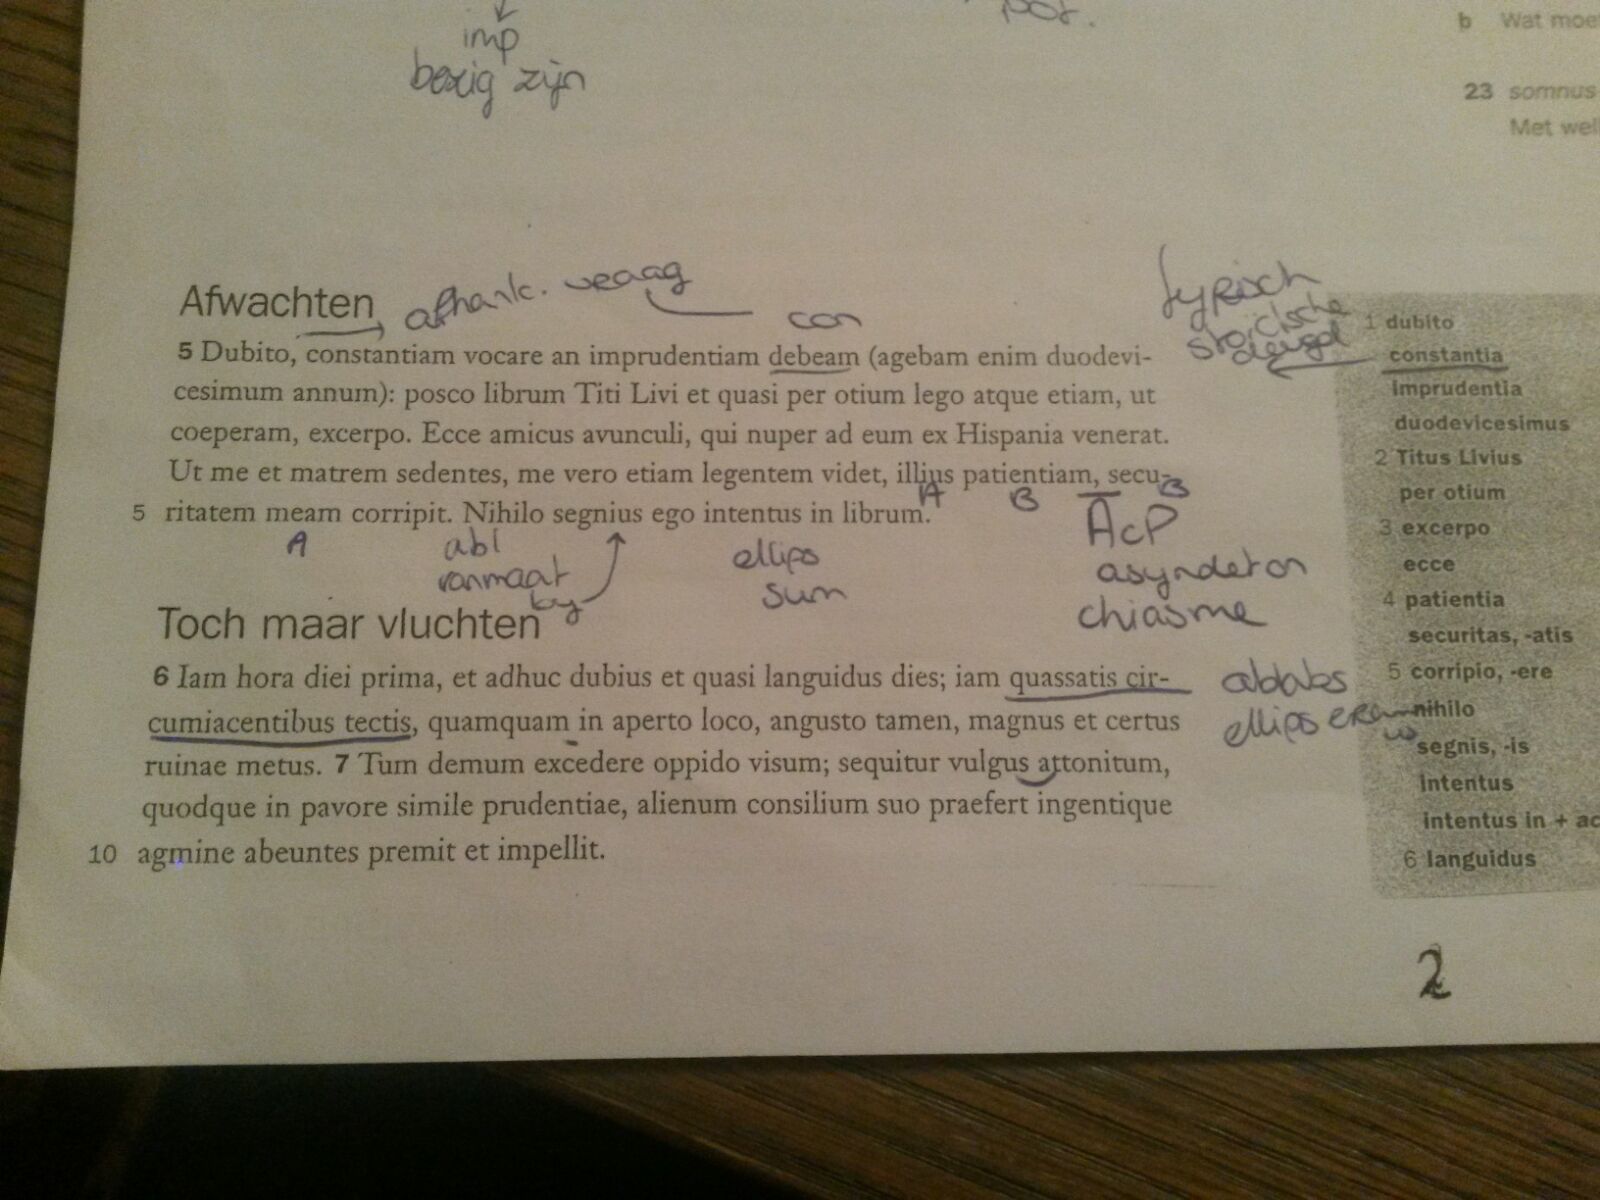 imp
bezig zijn
b Wat moe
23 somnus
Met wel
Afwachten
afhank. vraag
con
typisch
stoïcische
deugd
5 Dubito, constantiam vocare an imprudentiam debeam (agebam enim duodevi-
cesimum annum): posco librum Titi Livi et quasi per otium lego atque etiam, ut
coeperam, excerpo. Ecce amicus avunculi, qui nuper ad eum ex Hispania venerat.
Ut me et matrem sedentes, me vero etiam legentem videt, illius patientiam, secu-
A B B
5 ritatem meam corripit. Nihilo segnius ego intentus in librum.
A
abl
vanmaat
by
ellips
sum
AcP
asyndeton
chiasme
Toch maar vluchten
6 Iam hora diei prima, et adhuc dubius et quasi languidus dies; iam quassatis cir-
cumiacentibus tectis, quamquam in aperto loco, angusto tamen, magnus et certus
ruinae metus. 7 Tum demum excedere oppido visum; sequitur vulgus attonitum,
quodque in pavore simile prudentiae, alienum consilium suo praefert ingentique
10 agmine abeuntes premit et impellit.
ablabs
ellips
1 dubito
constantia
imprudentia
duodevicesimus
2 Titus Livius
per otium
3 excerpo
ecce
4 patientia
securitas, -atis
5 corripio, -ere
nihilo
segnis, -is
intentus
intentus in + ac
6 languidus
2